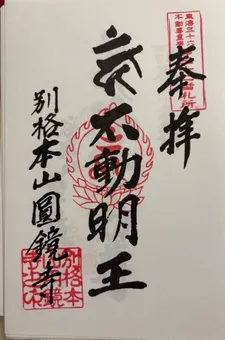 東海三十六
不動尊霊場
札所
奉拝
不動明王
別格本山圓鏡寺
別格本